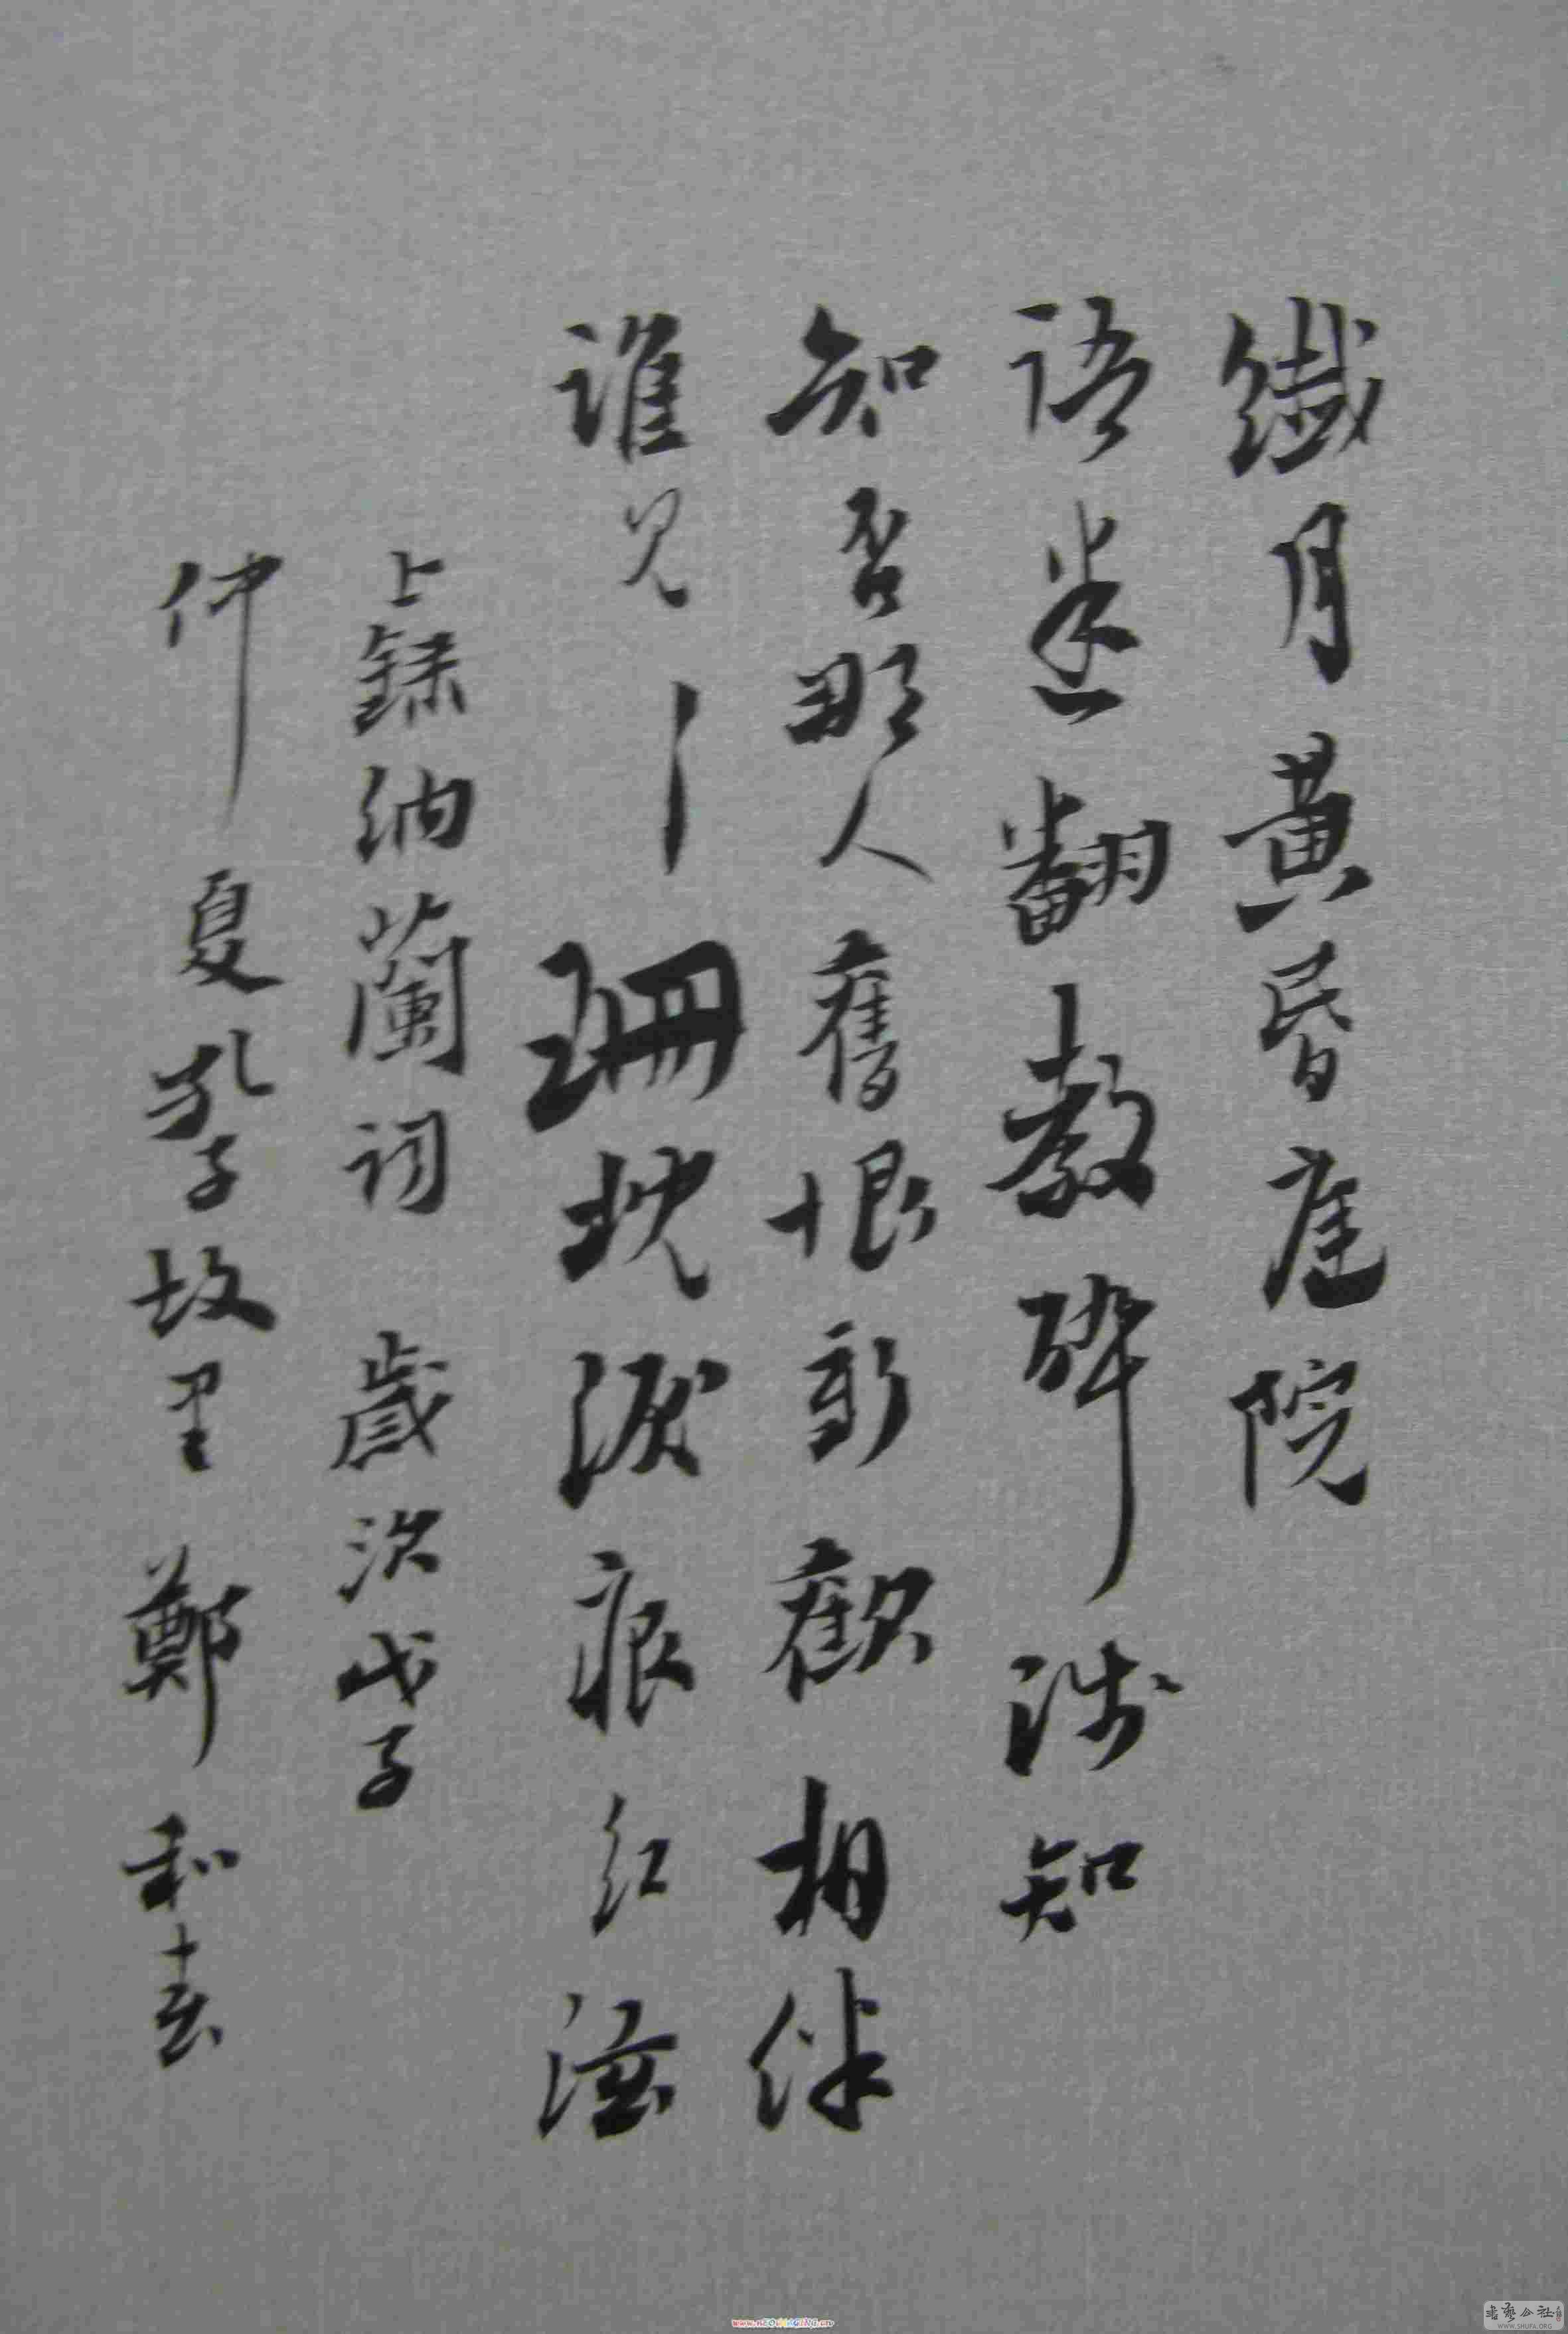 纖月黃昏庭院
語迷翻教醉浅知
知否那人舊恨新歡相伴
誰見珊枕淚痕紅
上錄納蘭詞 歲次戊子
仲夏孔子故里 鄭和
書藝公社
WWW.SHUFA.ORG